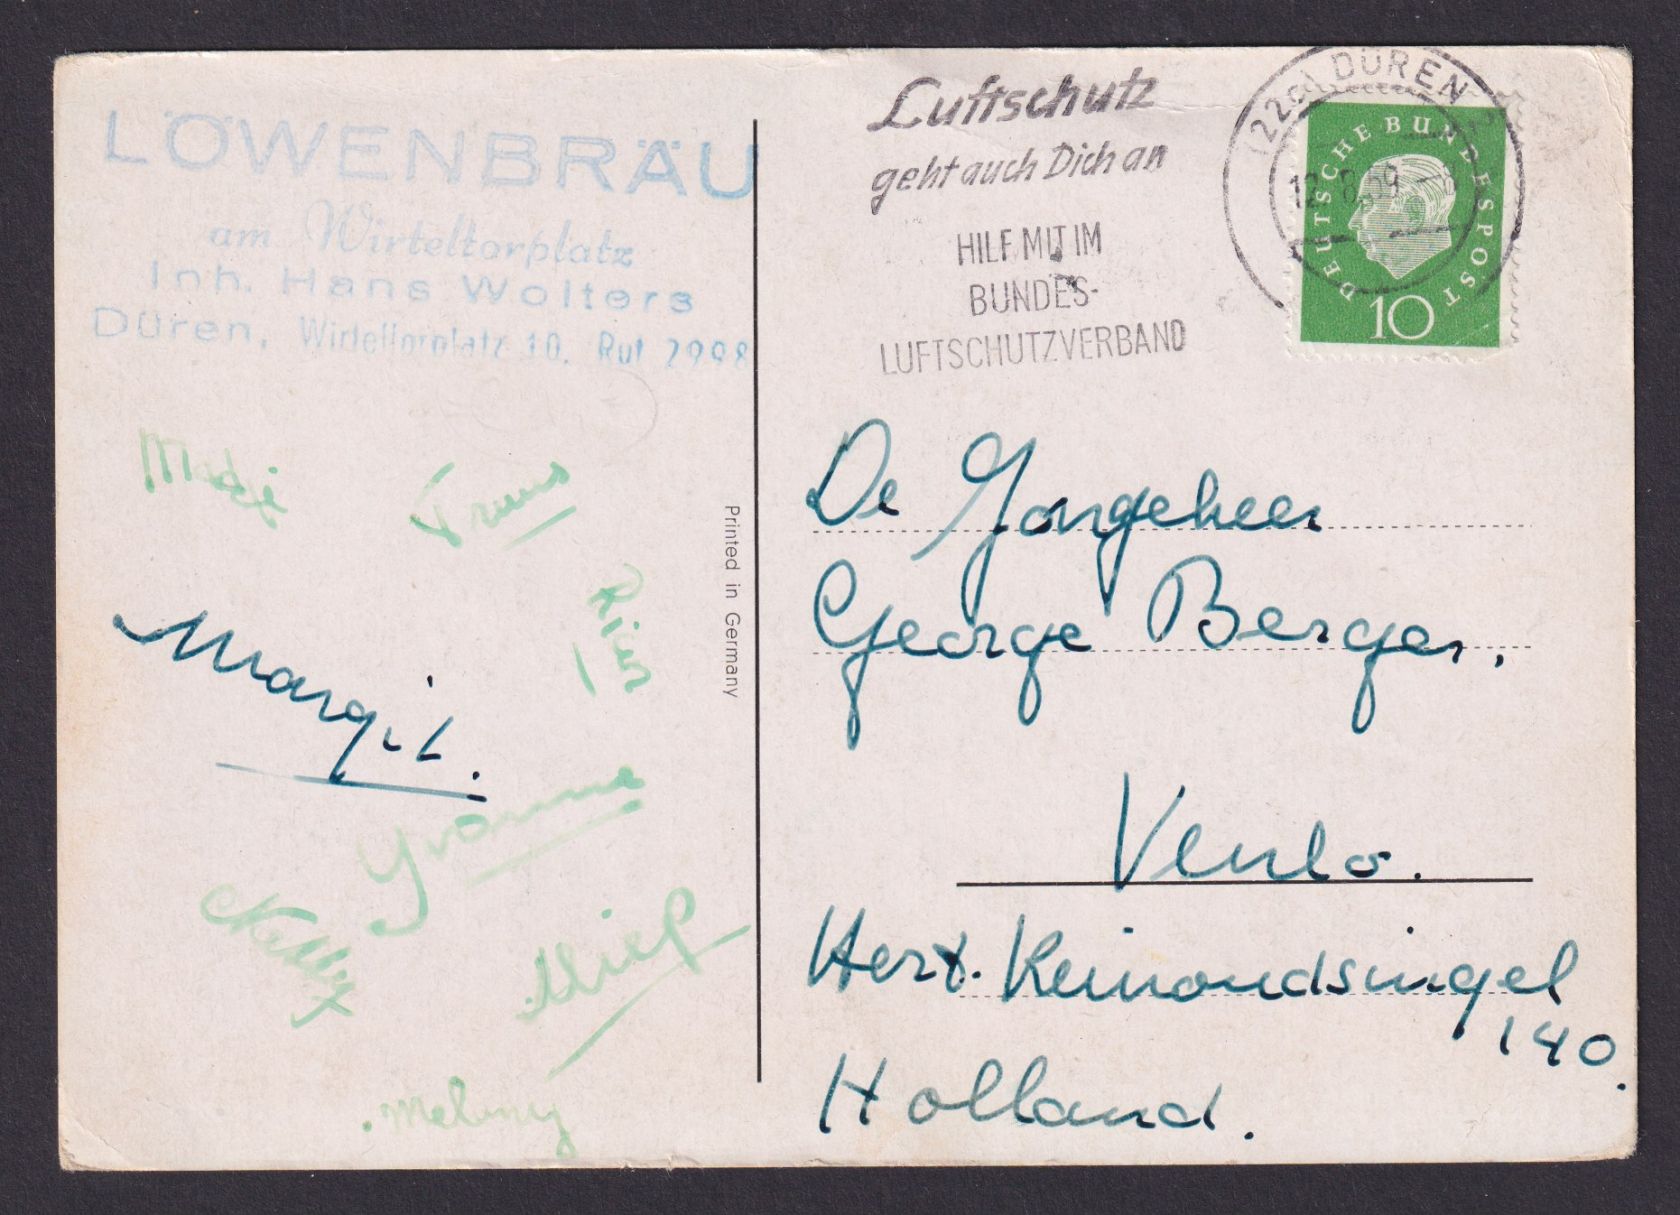 LÖWENBRÄU
am Wirteltorplatz
Inh. Hans Wolters
Düren, Wirteltorplatz 10. Ruf 2998
Truus
Ries
Margit.
Yvonne
Nelly
Miep
Printed in Germany
Luftschutz
geht auch Dich an
HILF MIT IM
BUNDES-
LUFTSCHUTZVERBAND
DÜREN
12.8.59
DEUTSCHE BUNDESPOST
10
De Jongeheer
George Berger.
Venlo.
Hert. Reinoudsingel
140.
Holland.